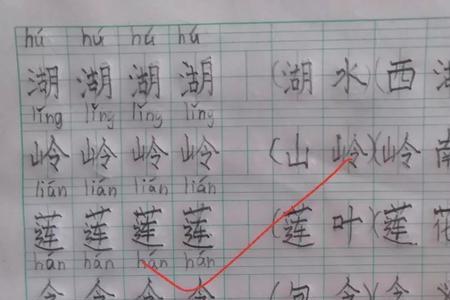 hú hú hú hú
湖 湖 湖 湖 (湖 水)(西 湖
lǐng lǐng lǐng lǐng
岭 岭 岭 岭 (山 岭)(岭 南
lián lián lián lián
莲 莲 莲 莲 (莲 叶)(莲 花
hán hán hán hán
含 含 含 含 (包 含)(含